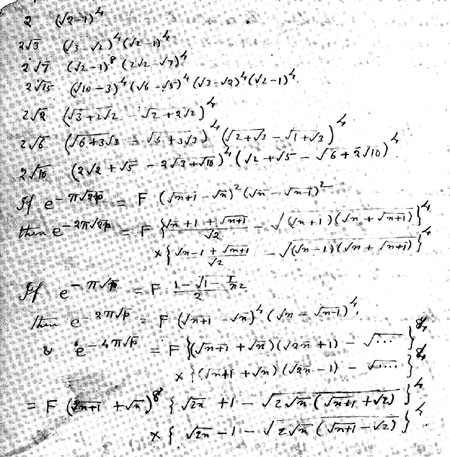 2 (√2-1)⁴
2√3 (√3-√2)⁴(√2-1)⁴
2√7 (√2-1)⁸ (2√2-√7)⁴
2√15 (√10-3)⁴(√6-√5)⁴(√3-√2)⁴(√2-1)⁴
2√2 (√3+2√2 - √2+2√2)⁴
2√6 (√6+3√3 - √5+3√3)⁴ (√2+√3 - √1+√3)⁴
2√10 (2√2+√5 - 2√3+√10)⁴(√2+√5 - √6+2√10)⁴
If e^{-π√2p} = F (√n+1 - √n)²(√n - √n-1)²
then e^{-2π√2p} = F {√n+1+√n+1/√2 - √(√n+1)(√n+√n+1)}⁴
× {√n-1+√n+1/√2 - √(√n-1)(√n+√n+1)}⁴
If e^{-π√p} = F 1-√1-1/n²/2
then e^{-2π√p} = F (√n+1 - √n)⁴(√n - √n-1)⁴
& e^{-4π√p} = F{(√n+1+√n)(√2n+1) - √...}⁸
× {(√n+1+√n)(√2n-1) - √...}⁸
= F (√n+1+√n)⁸ {√2n+1-√2√n(√n+1+√2)}⁴
× {√2n-1-√2√n(√n+1-√2)}⁴